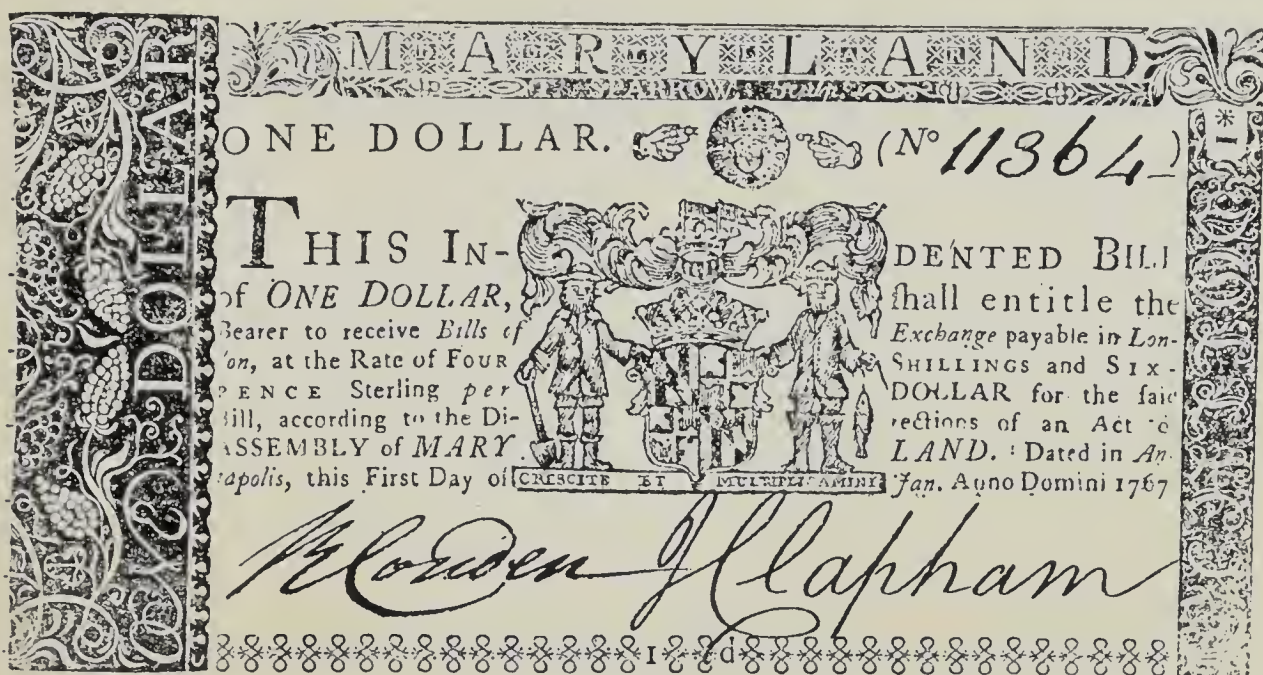 MARYLAND
T. SPARROW
ONE DOLLAR. (No 11364)
THIS IN- DENTED BILL
of ONE DOLLAR, ſhall entitle the
Bearer to receive Bills of Exchange payable in Lon-
don, at the Rate of FOUR SHILLINGS and SIX-
PENCE Sterling per DOLLAR for the ſaid
Bill, according to the Di- rections of an Act of
ASSEMBLY of MARY LAND. Dated in An-
napolis, this Firſt Day of Jan. Anno Domini 1767
CRESCITE ET MULTIPLICAMINI
J Clapham
1 d
ONE DOLLAR